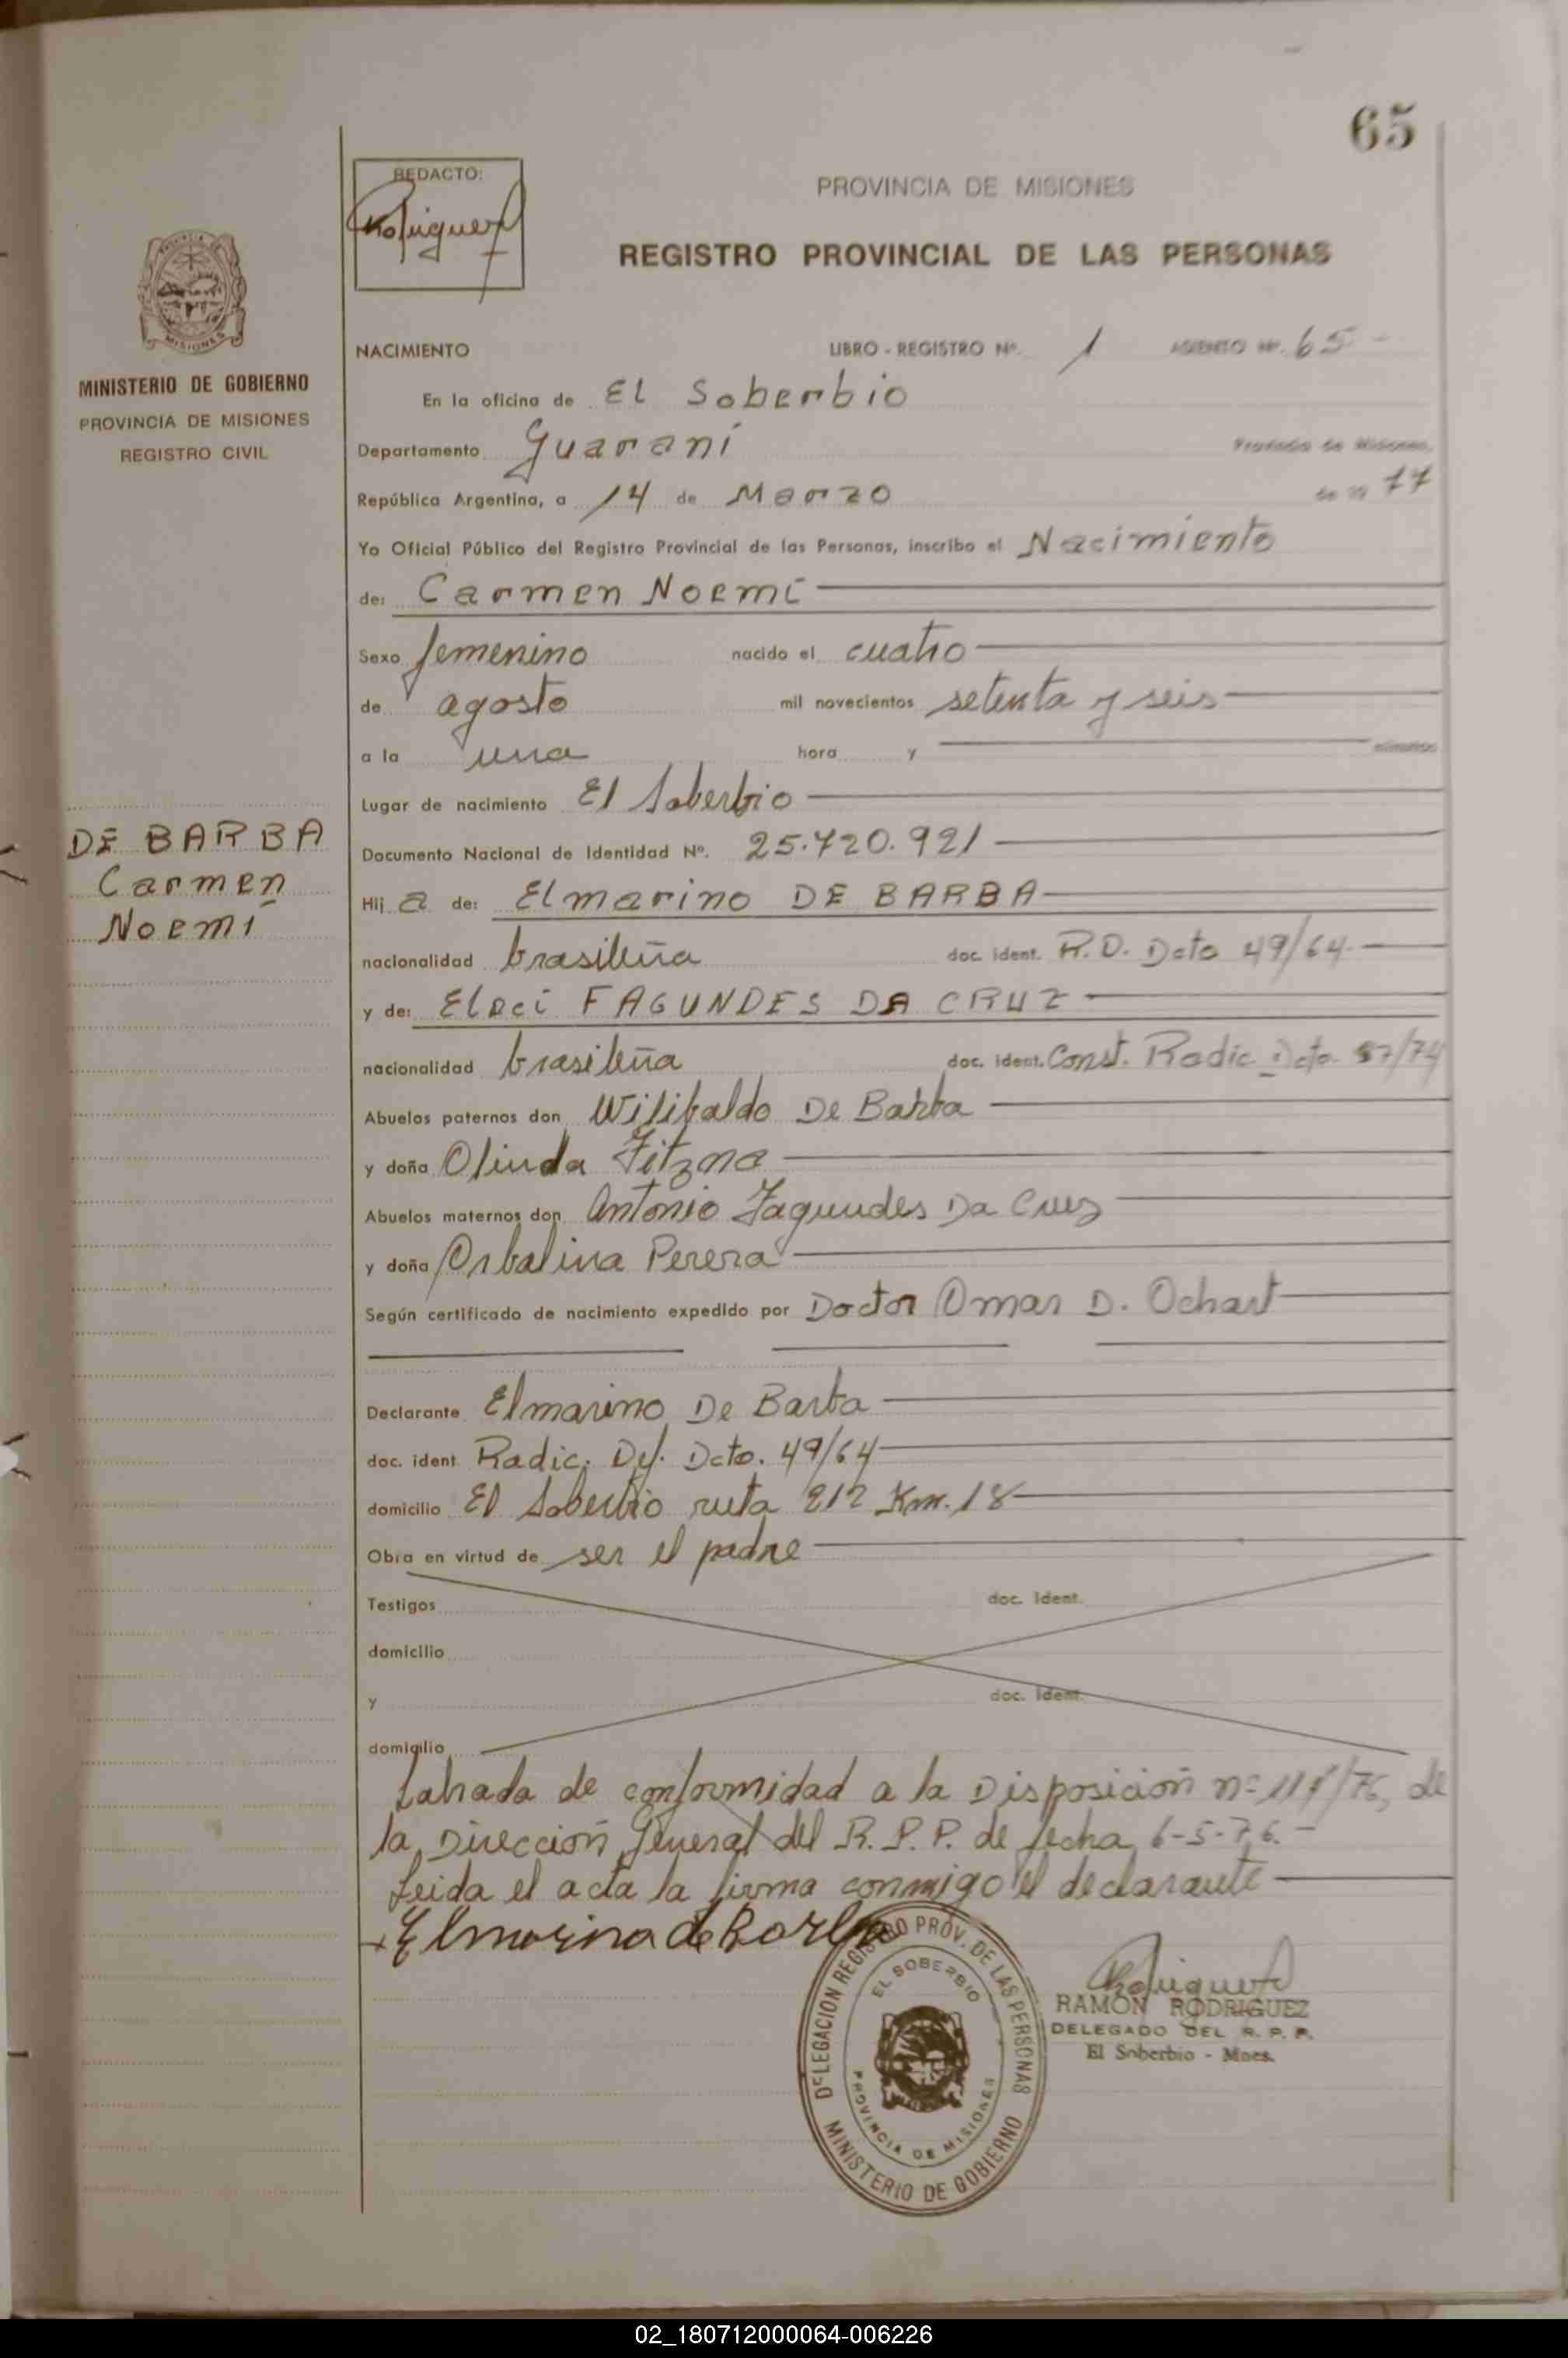 65
REDACTO:
PROVINCIA DE MISIONES
REGISTRO PROVINCIAL DE LAS PERSONAS
MINISTERIO DE GOBIERNO
PROVINCIA DE MISIONES
REGISTRO CIVIL
NACIMIENTO LIBRO - REGISTRO Nº. 1 ASIENTO Nº. 65
En la oficina de El Soberbio
Departamento Guaraní Provincia de Misiones,
República Argentina, a 14 de Marzo de 19 77
Yo Oficial Público del Registro Provincial de las Personas, inscribo el Nacimiento
de: Carmen Noemí
Sexo femenino nacido el cuatro
de agosto mil novecientos setenta y seis
a la una hora y minutos
Lugar de nacimiento El Soberbio
DE BARBA
Carmen
Noemí
Documento Nacional de Identidad Nº. 25.720.921
Hij a de: Elmarino DE BARBA
nacionalidad brasileña doc. ident. R.D. Dcto 49/64
y de: Eleci FAGUNDES DA CRUZ
nacionalidad brasileña doc. ident. Const. Radic. Dcto 87/74
Abuelos paternos don Wilibaldo De Barba
y doña Olinda
Abuelos maternos don Antonio Fagundes Da Cruz
y doña Orbalina Perera
Según certificado de nacimiento expedido por Doctor Omar D. Ochart
Declarante Elmarino De Barba
doc. ident. Radic. Def. Dcto. 49/64
domicilio El Soberbio ruta 212 Km. 18
Obra en virtud de ser el padre
Testigos doc. ident.
domicilio
y doc. ident.
domicilio
Labrada de conformidad a la Disposición nº /76, de
la Dirección General del R.P.P. de fecha 6-5-76.-
Leida el acta la firma conmigo el declarante
Elmarino de Barba
DELEGACION REGISTRO PROV. DE LAS PERSONAS
EL SOBERBIO
PROVINCIA DE MISIONES
MINISTERIO DE GOBIERNO
RAMON RODRIGUEZ
DELEGADO DEL R. P. P.
El Soberbio - Mnes.
02_180712000064-006226